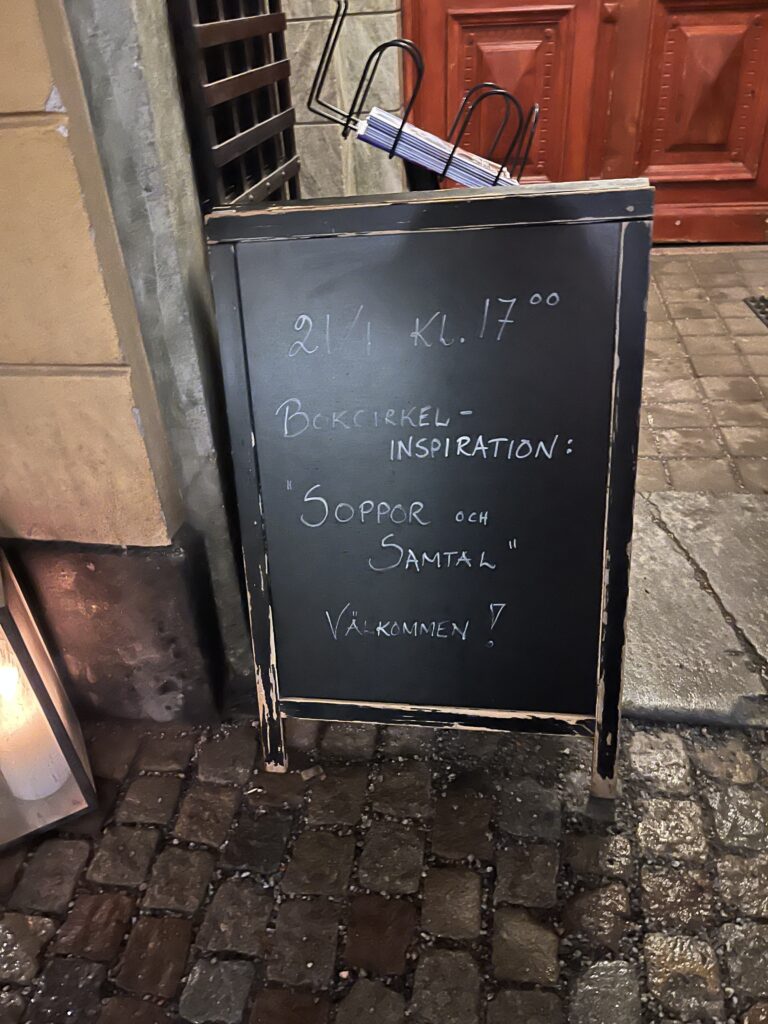 21/1 KL. 17⁰⁰
BOKCIRKEL-
INSPIRATION:
"SOPPOR OCH
SAMTAL"
VÄLKOMMEN!